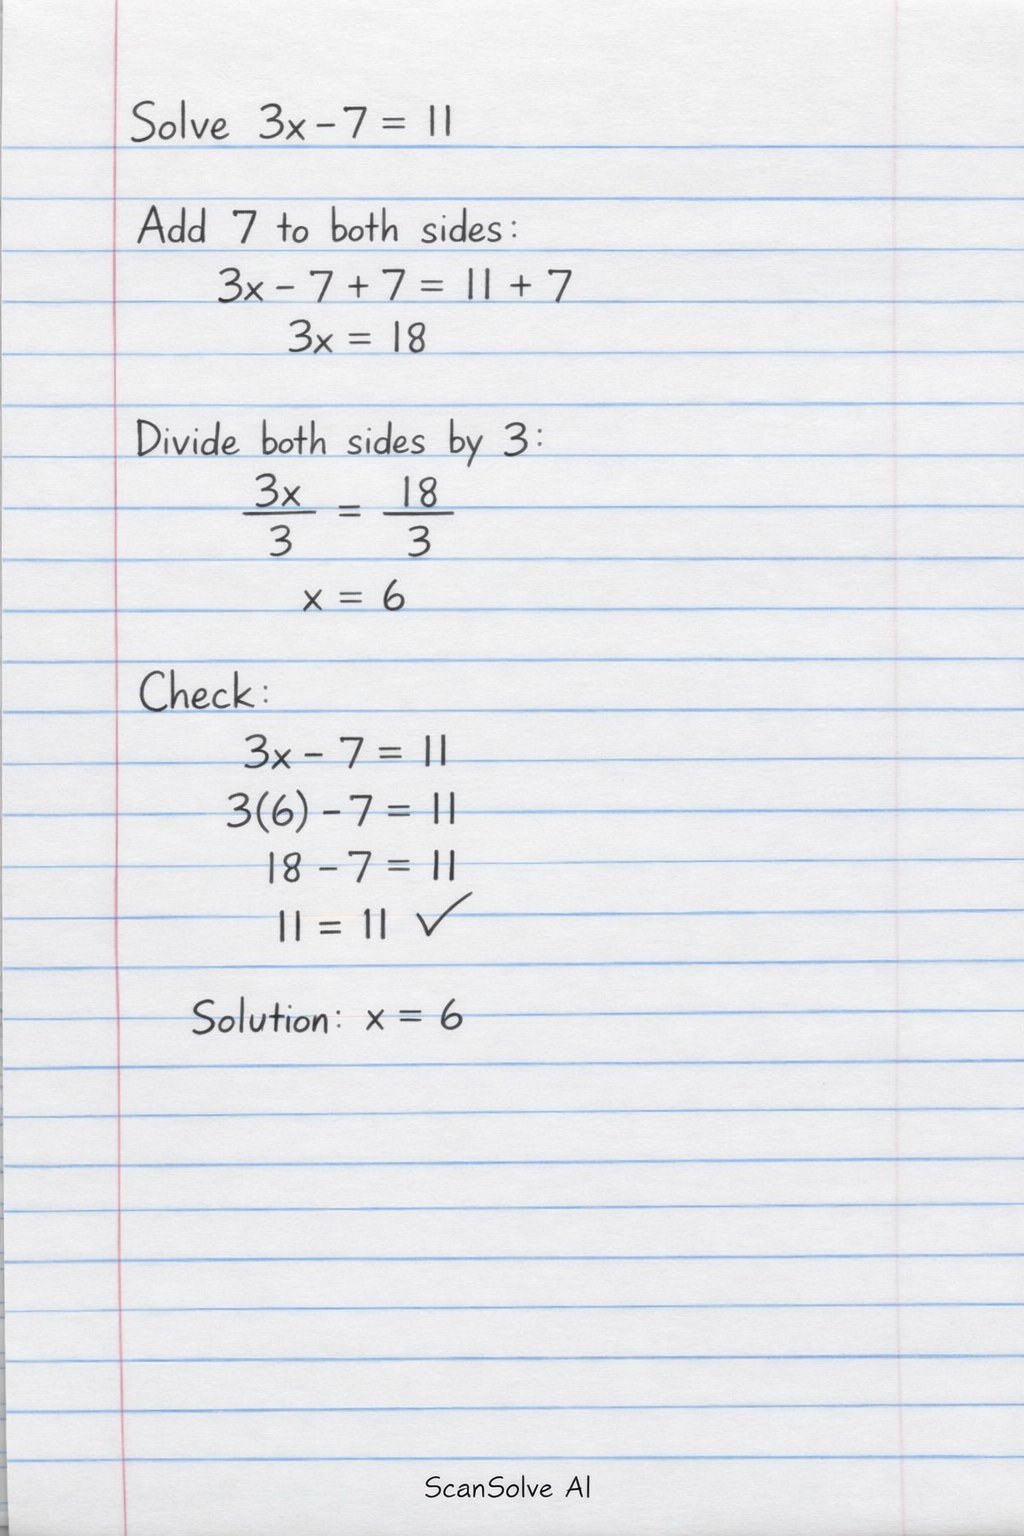 Solve 3x - 7 = 11
Add 7 to both sides:
3x - 7 + 7 = 11 + 7
3x = 18
Divide both sides by 3:
3x/3 = 18/3
x = 6
Check:
3x - 7 = 11
3(6) - 7 = 11
18 - 7 = 11
11 = 11 ✓
Solution: x = 6
ScanSolve AI